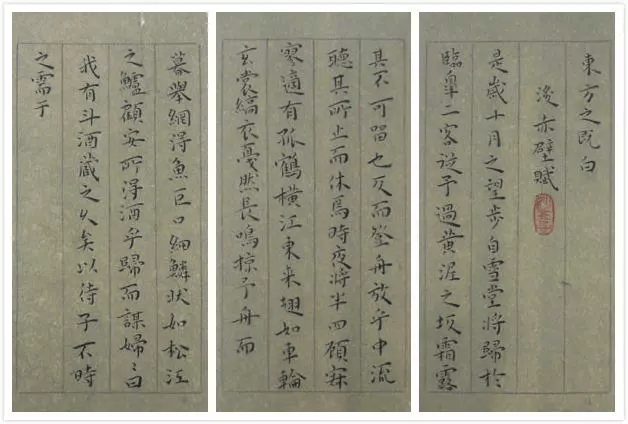 東方之既白
後赤壁賦
是歲十月之望步自雪堂將歸於
臨皋二客從予過黃泥之坂霜露
其不可留也反而登舟放乎中流
聽其所止而休焉時夜將半四顧寂
寥適有孤鶴橫江東来翅如車輪
玄裳縞衣戛然長鳴掠予舟而
暮舉網得魚巨口細鱗狀如松江
之鱸顧安所得酒乎歸而謀婦〻曰
我有斗酒藏之久矣以待子不時
之需于